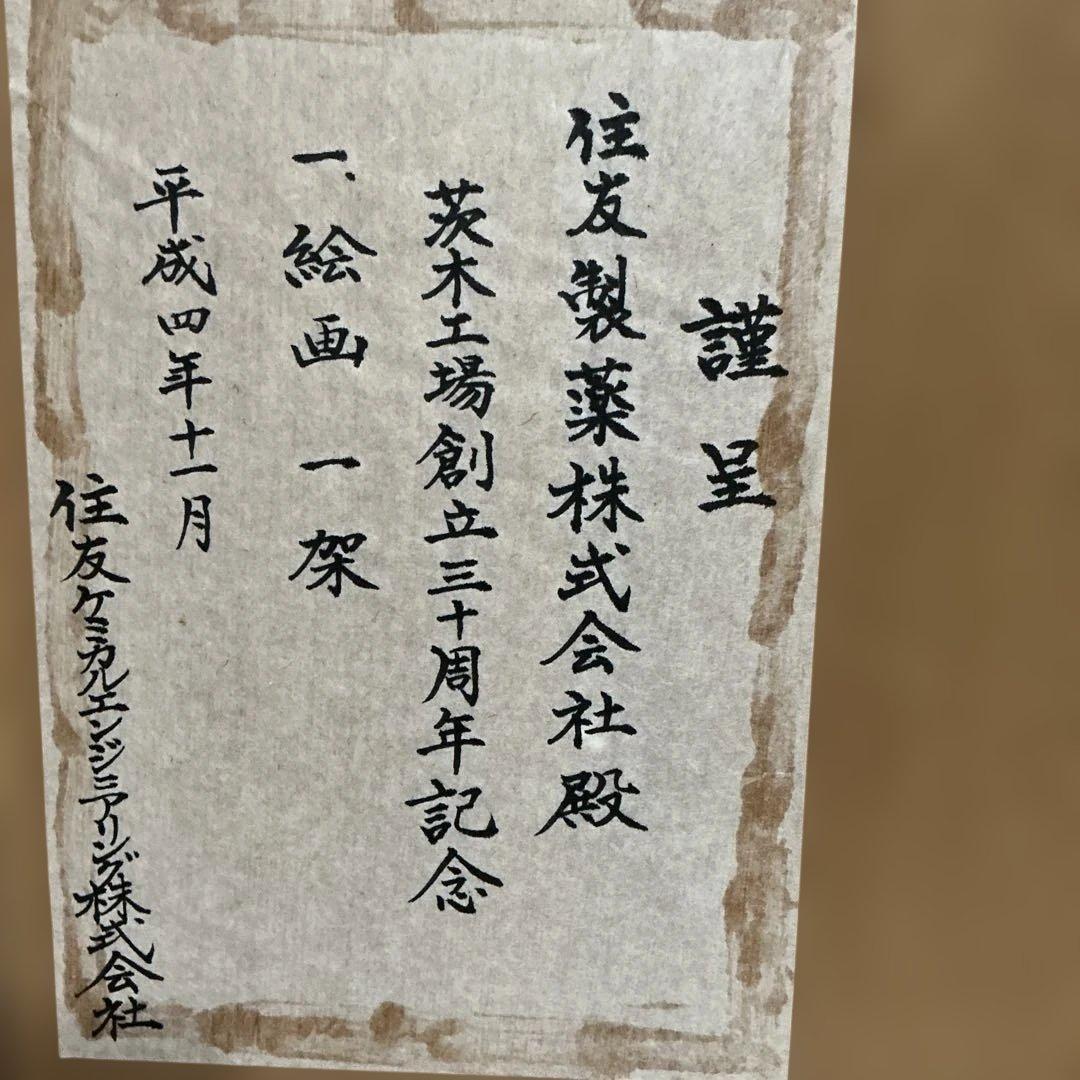 謹呈
住友製薬株式会社殿
茨木工場創立三十周年記念
一、絵画一架
平成四年十一月
住友ケミカルエンジニアリング株式会社